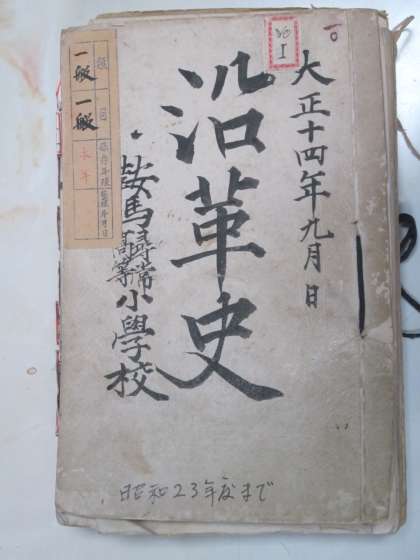 大正十四年九月日
沿革史
鞍馬尋常高等小學校
昭和23年度まで
一般
一般
永年